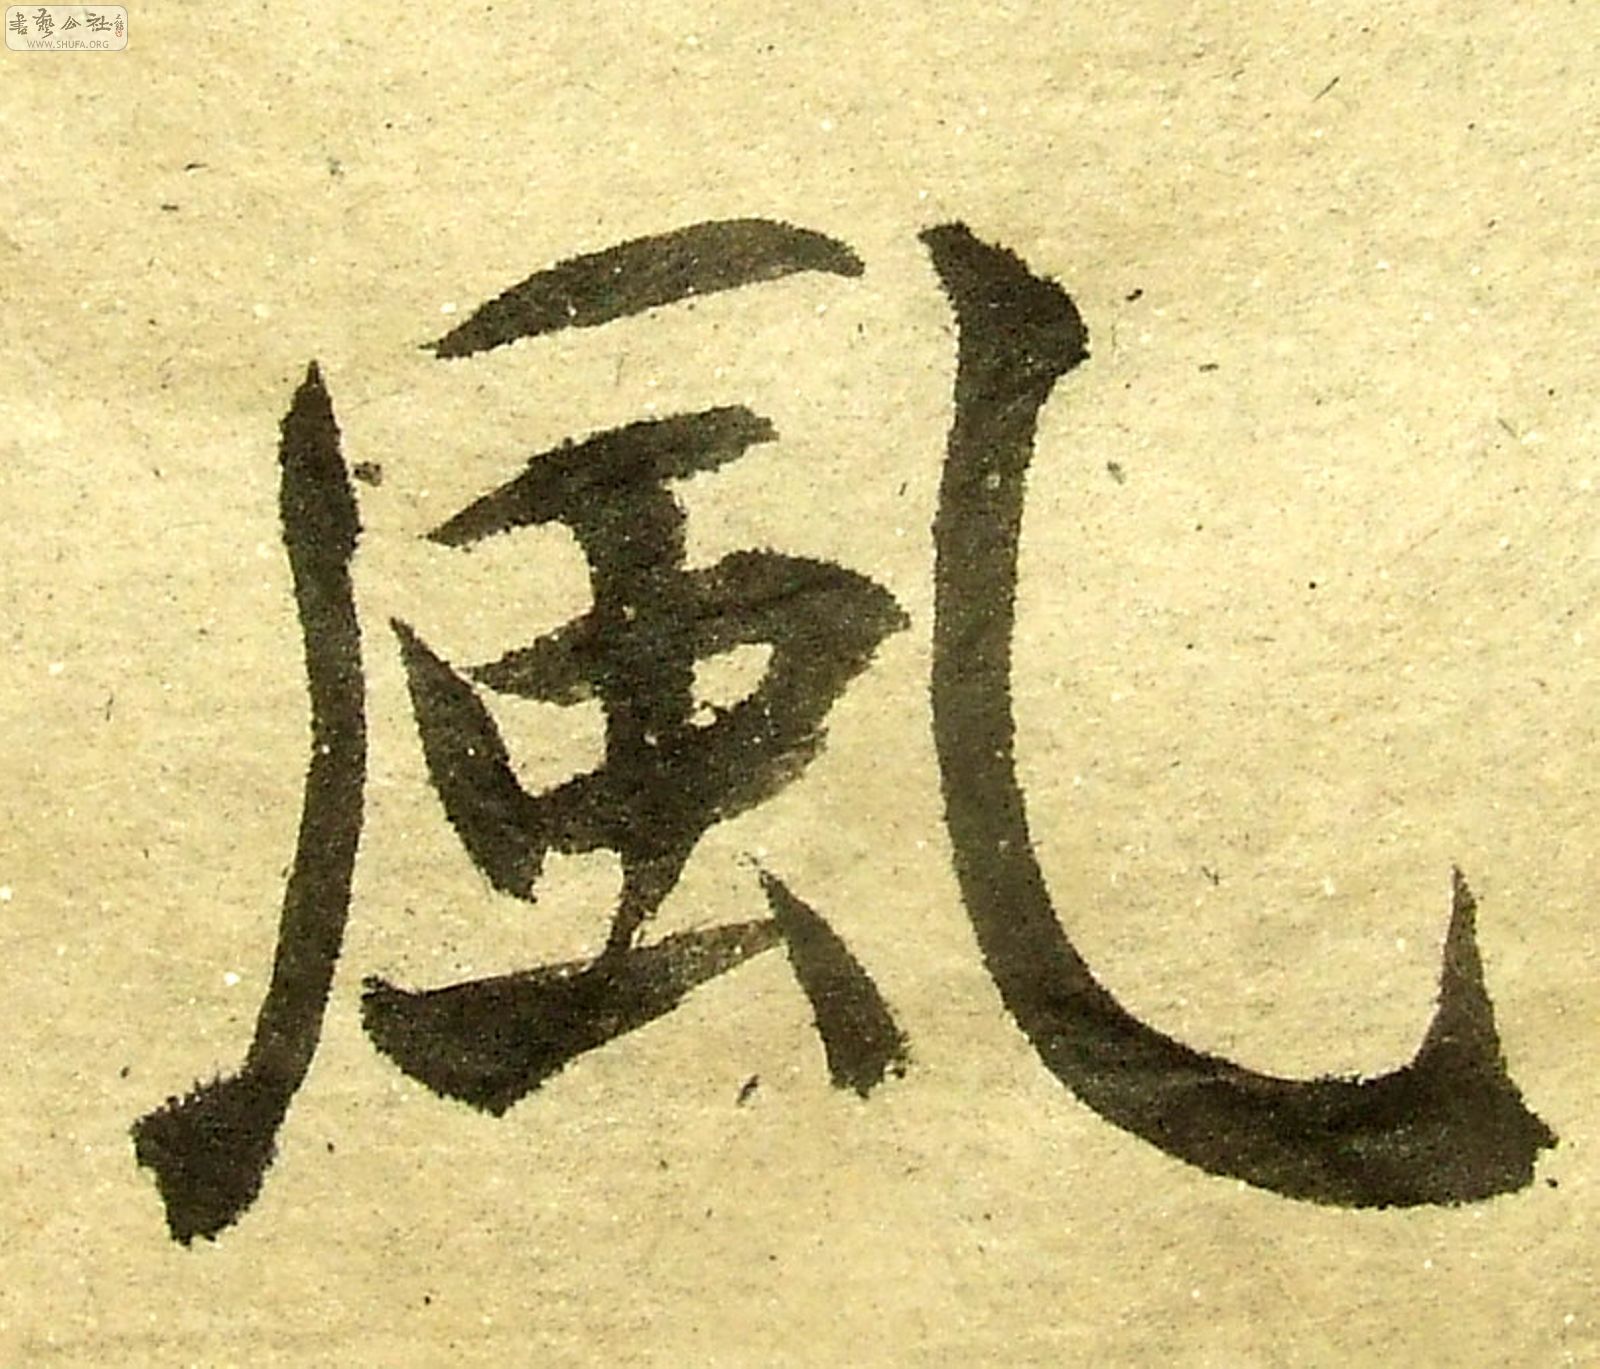 書藝公社
WWW.SHUFA.ORG
風